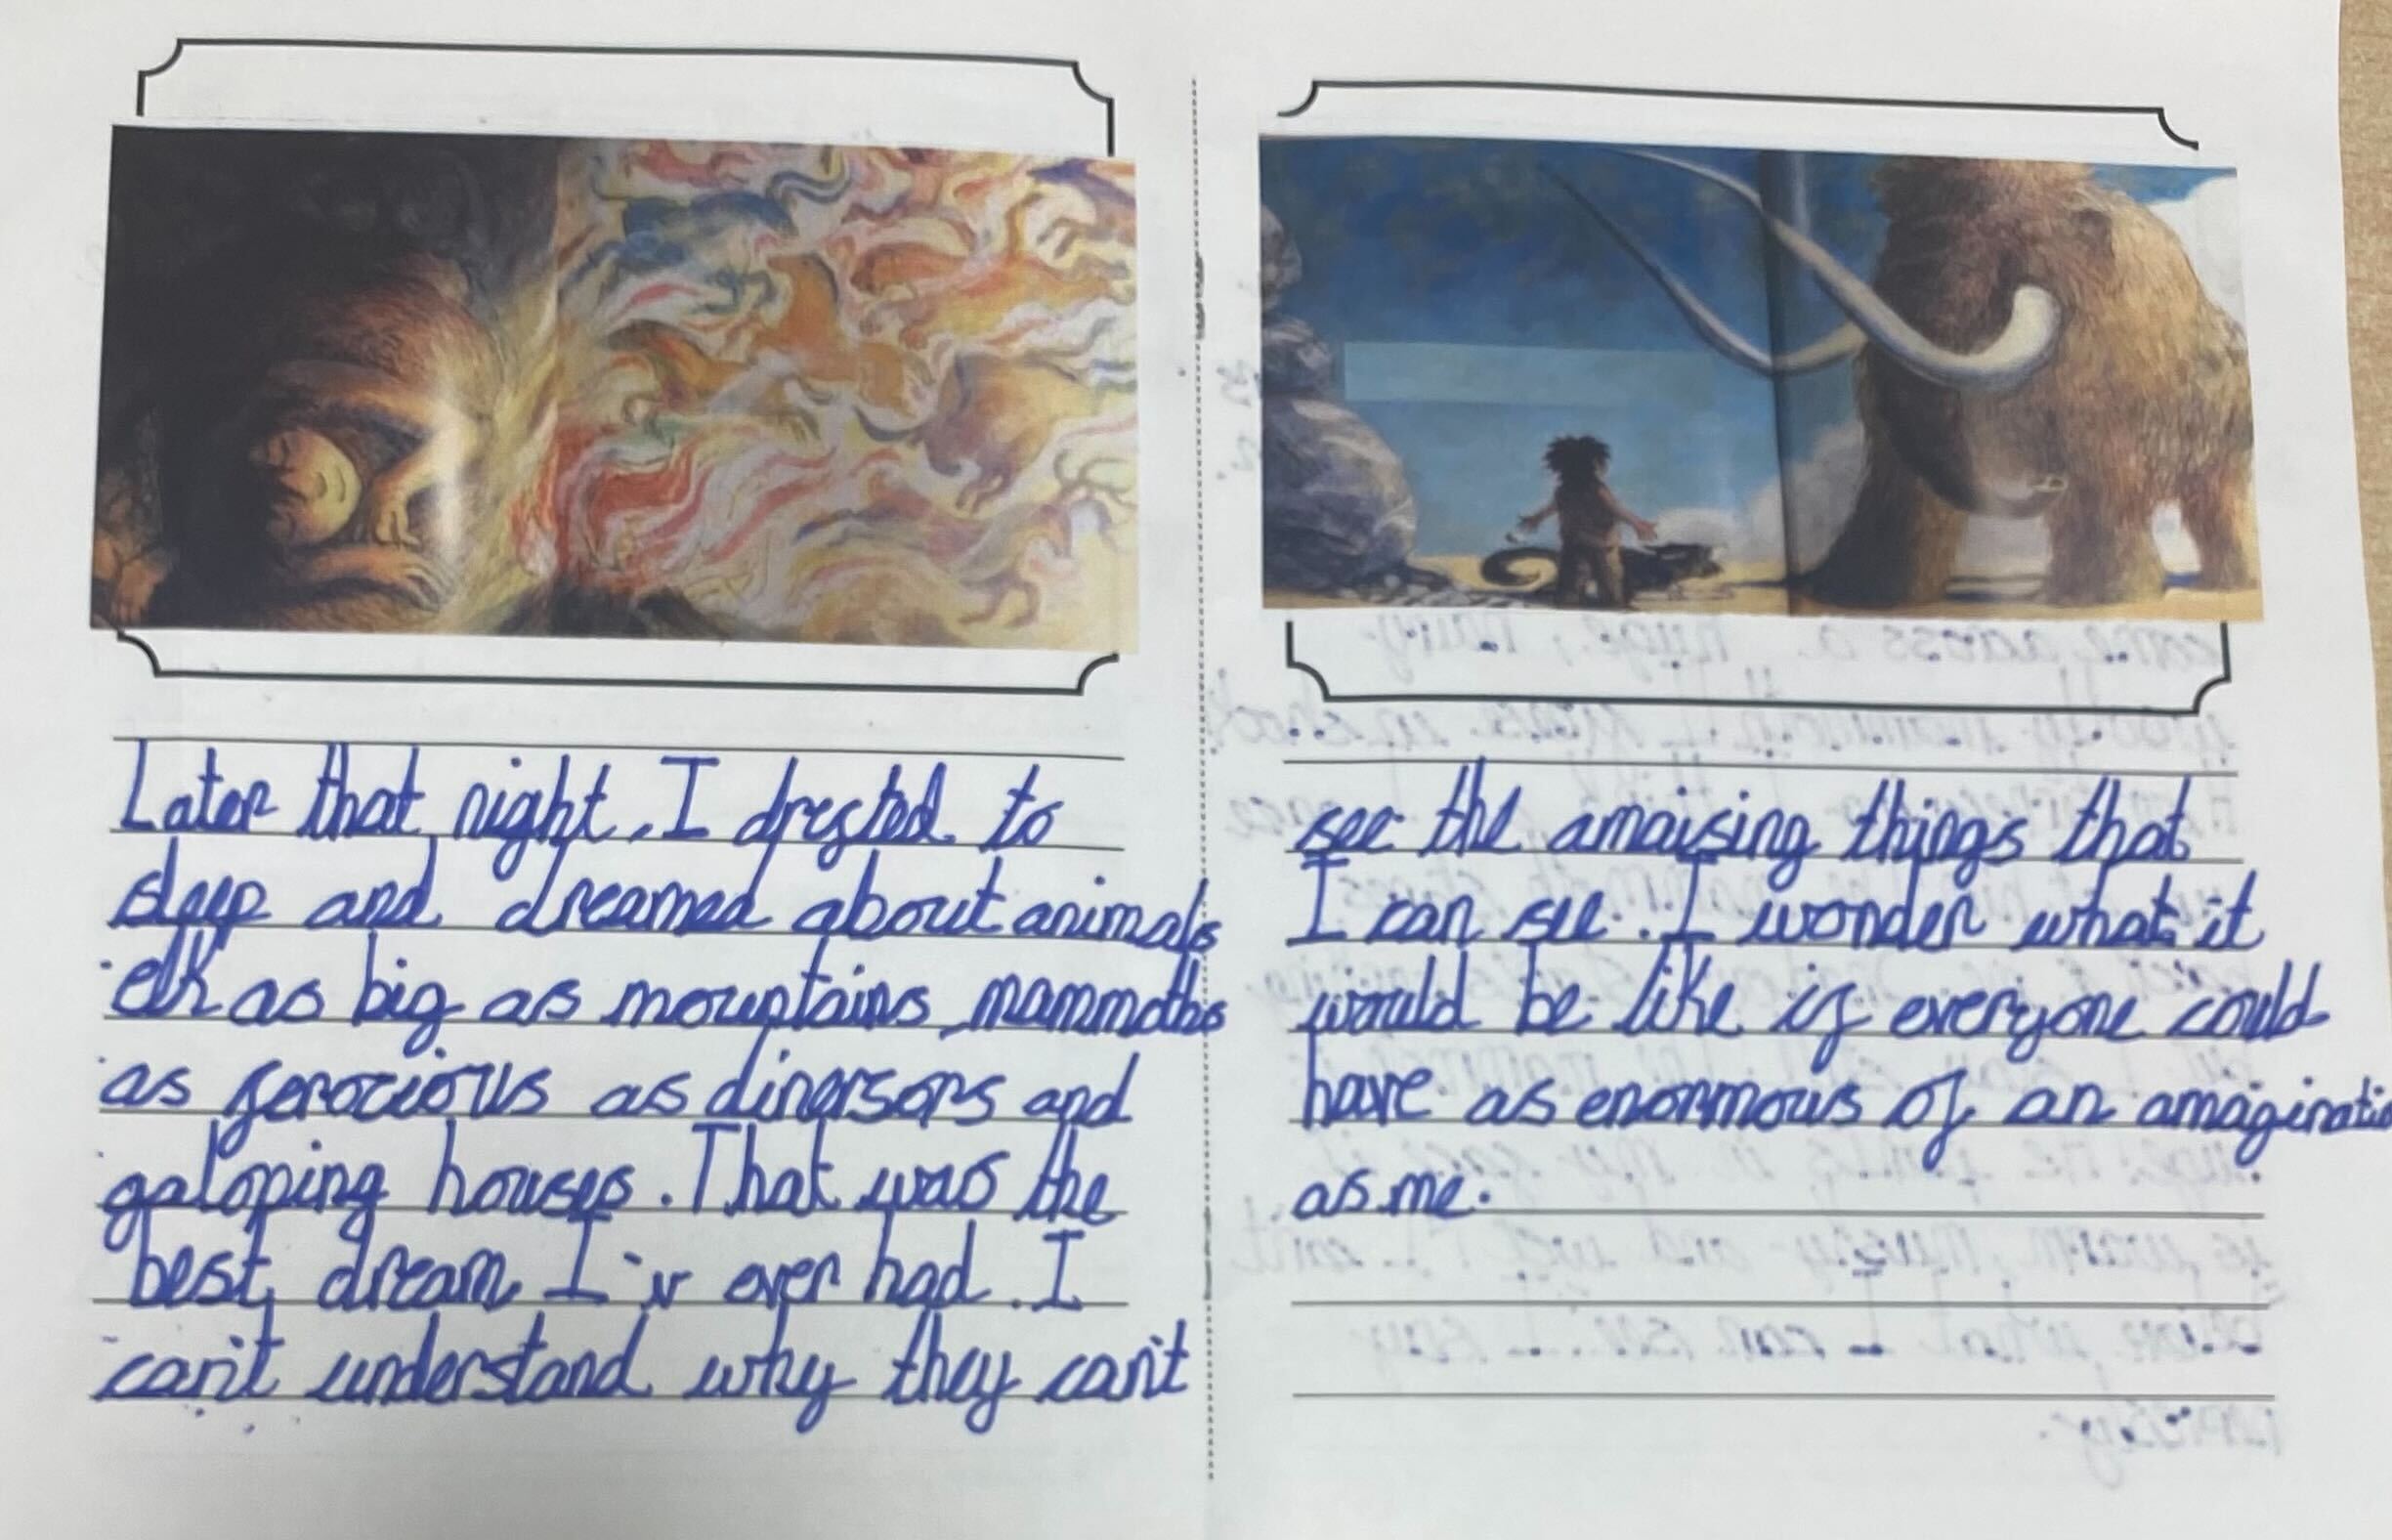 Later that night, I drested to
sleep and dreamed about animals
elk as big as mountains, mammoths
as ferocious as dinorsors and
galoping houses. That was the
best dream I'v ever had. I
can't understand why they can't
see the amaising things that
I can see. I wonder what it
would be like if everyone could
have as enormous of an amaginatio
as me.